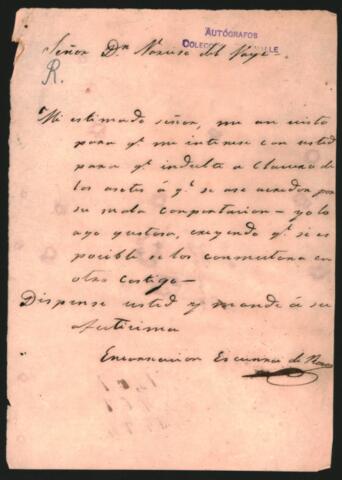 AUTÓGRAFOS
Señor Dn Narciso del Valle-
R.
Mi estimado señor, me an visto
para q.e me interese con usted
para q.e indulte a Clausa de
los asotes á q.e se ase acredor por
su mala comportacion - yo lo
ago gustosa, creyendo q.e si es
pocible se los conmutara en
otro castigo-
Dispense usted y mande á su
afectisima
Encarnacion Escurra de Rosas